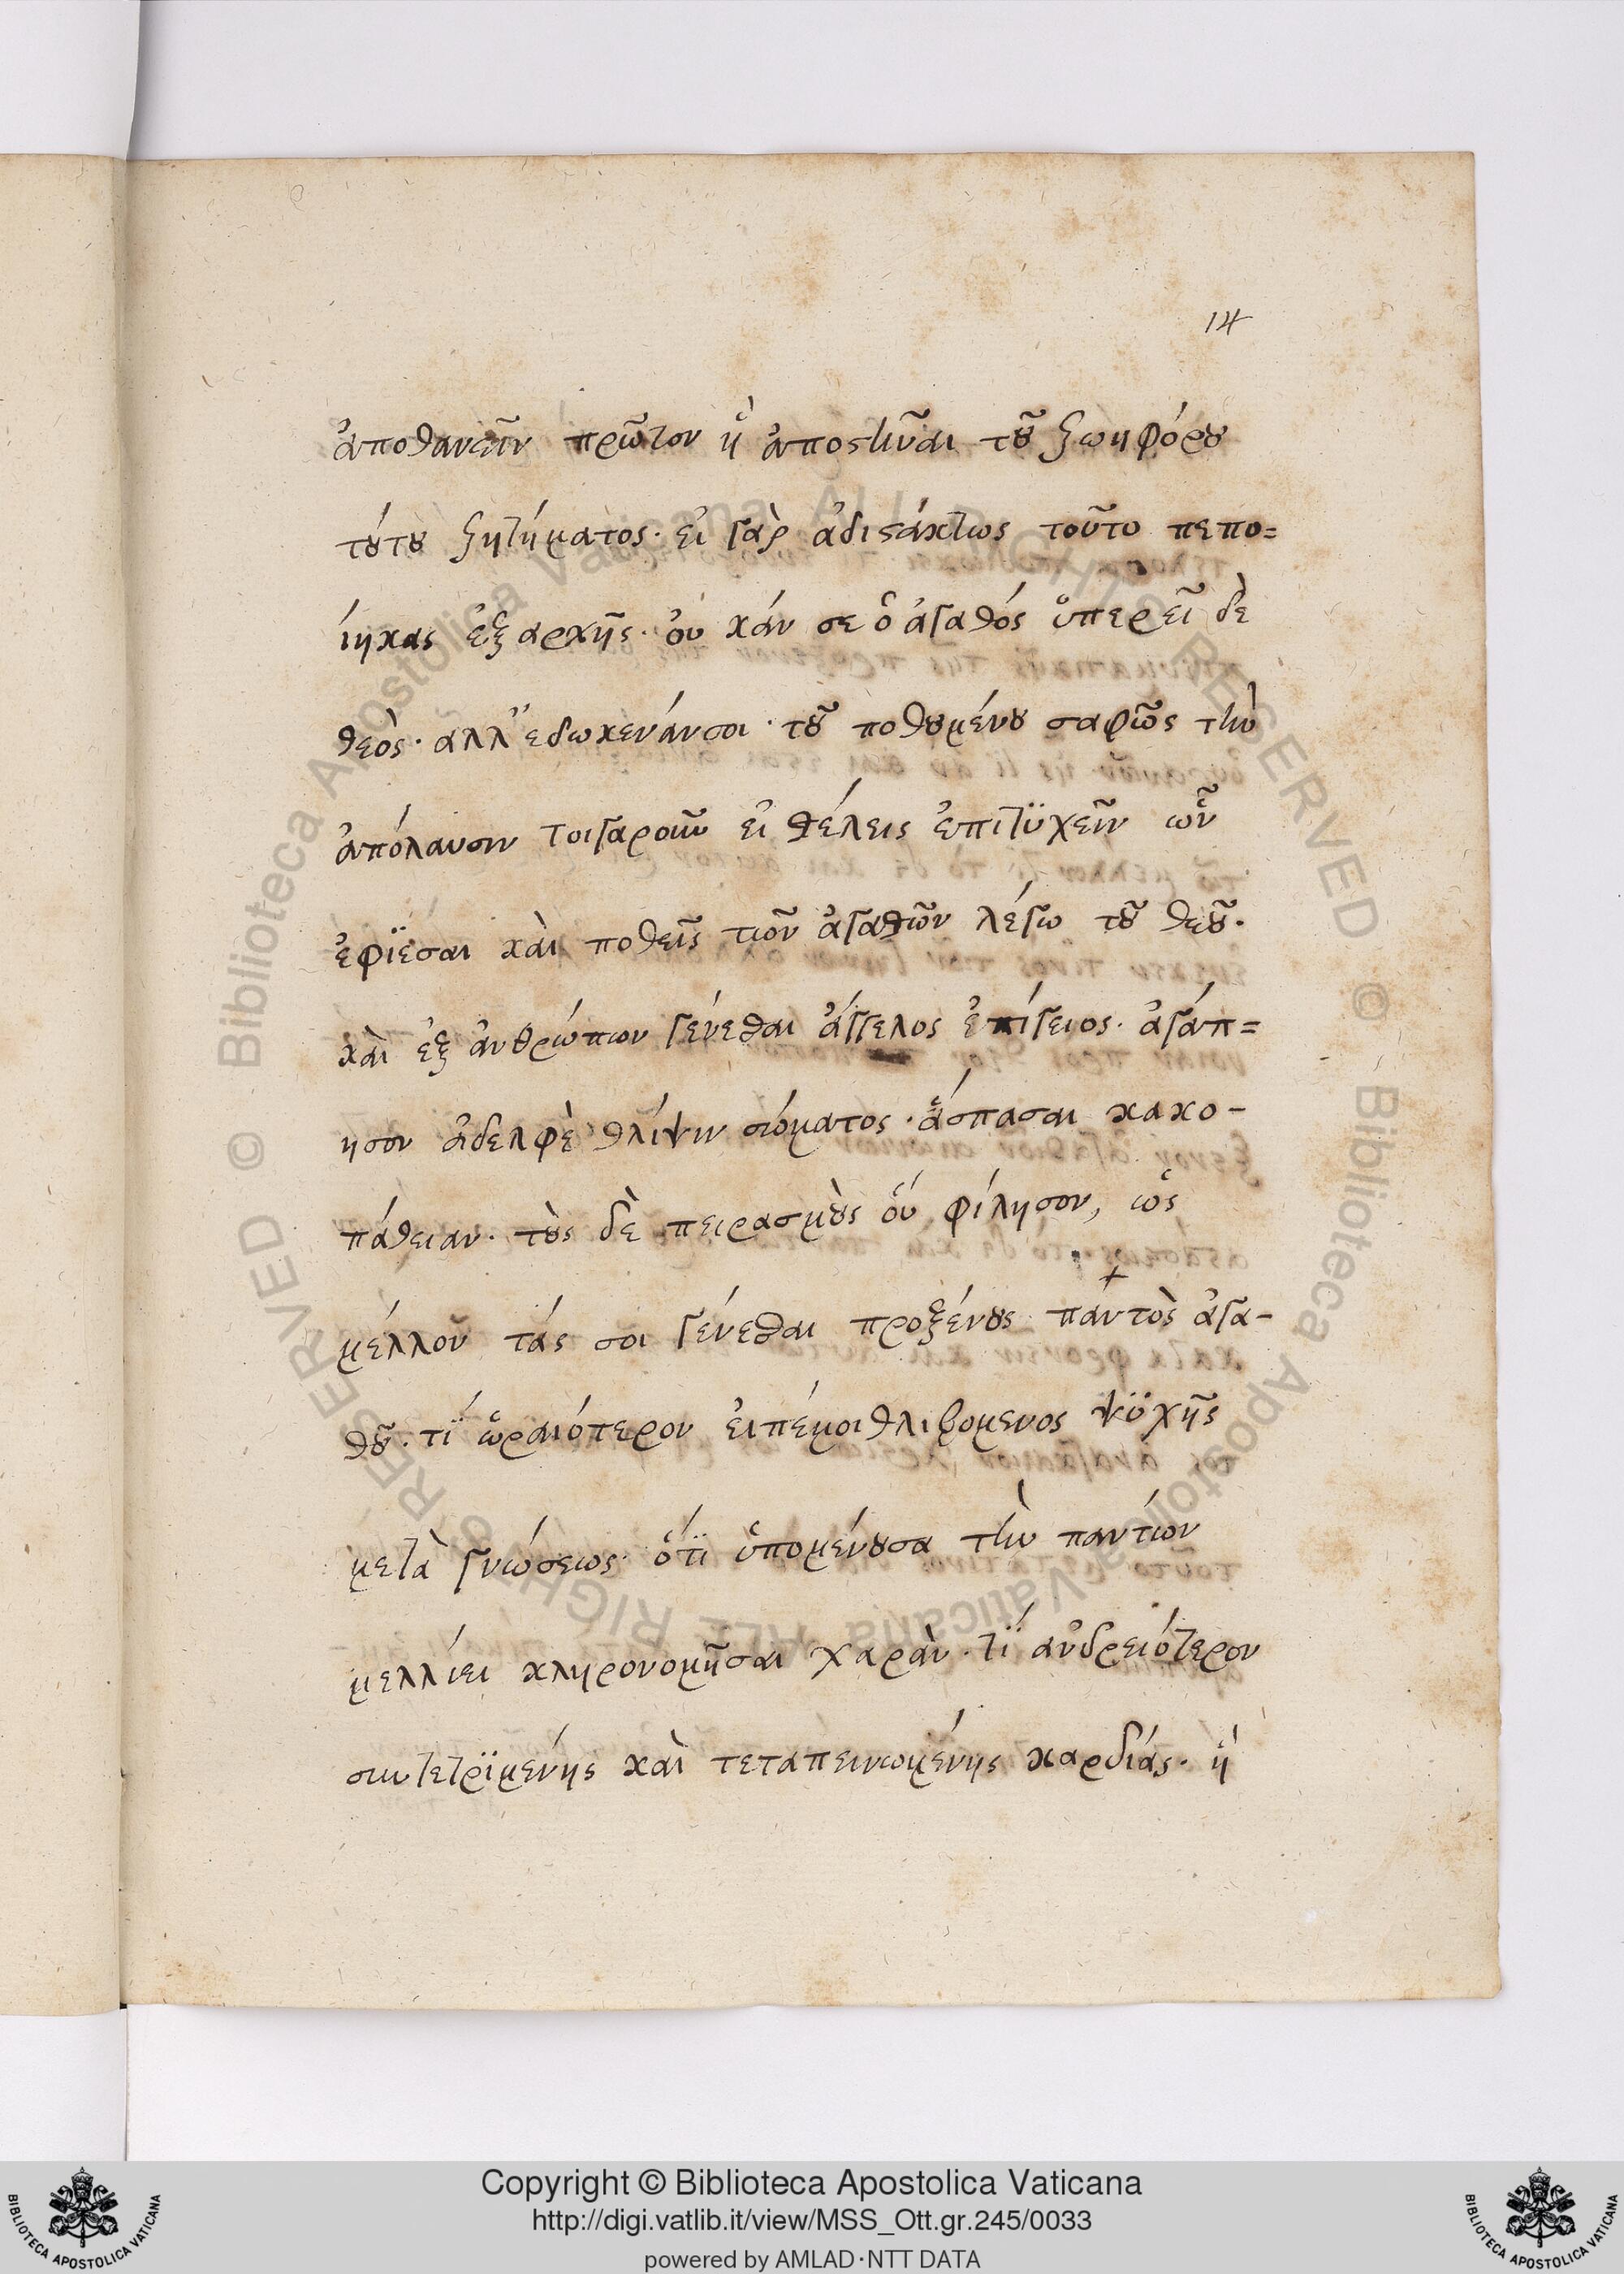 14
ἀποθανεῖν πρῶτον ἢ ἀποστῆναι τοῦ ζωηφόρου
τούτου ζητήματος· εἰ γὰρ ἀδιστάκτως τοῦτο πεπο=
ίηκας ἐξ αρχῆς· οὐ κάν σε ὁ ἀγαθός ὑπερεῖ δὲ
θεὸς· ἀλλ' εδωκενάνσοι· τοῦ ποθουμένου σαφῶς τὴν
ἀπόλαυσιν τοιγαροῦν εἰ θέλεις ἐπιτϋχεῖν ὧν
ἐφϊέσαι καὶ ποθεῖς τῶν ἀγαθῶν λέγω τοῦ θεοῦ.
καὶ ἐξ ἀνθρώπων γένεσθαι ἄγγελος ἐπίγειος· ἀγάπ=
ησον ἀδελφὲ θλίψιν σώματος· ἄσπασαι κακο-
πάθειαν· τοὺς δὲ πειρασμοὺς οὕ φίλησον, ὡς
μέλλον τάς σοι γένεσθαι προξένους παντὸς ἀγα-
θοῦ· τί ὡραιότερον ἐιπέμοι θλιβομενος ψϋχῆς
μετὰ γνώσεως· ὅτϊ ὑπομένουσα τὴν παντίων
μελλίει κληρονομῆσαι χαρὰν· τί ανδρειότερον
συντετρϊμένης καὶ τεταπεινωμένης καρδίας· ἢ
Copyright © Biblioteca Apostolica Vaticana
http://digi.vatlib.it/view/MSS_Ott.gr.245/0033
powered by AMLAD·NTT DATA